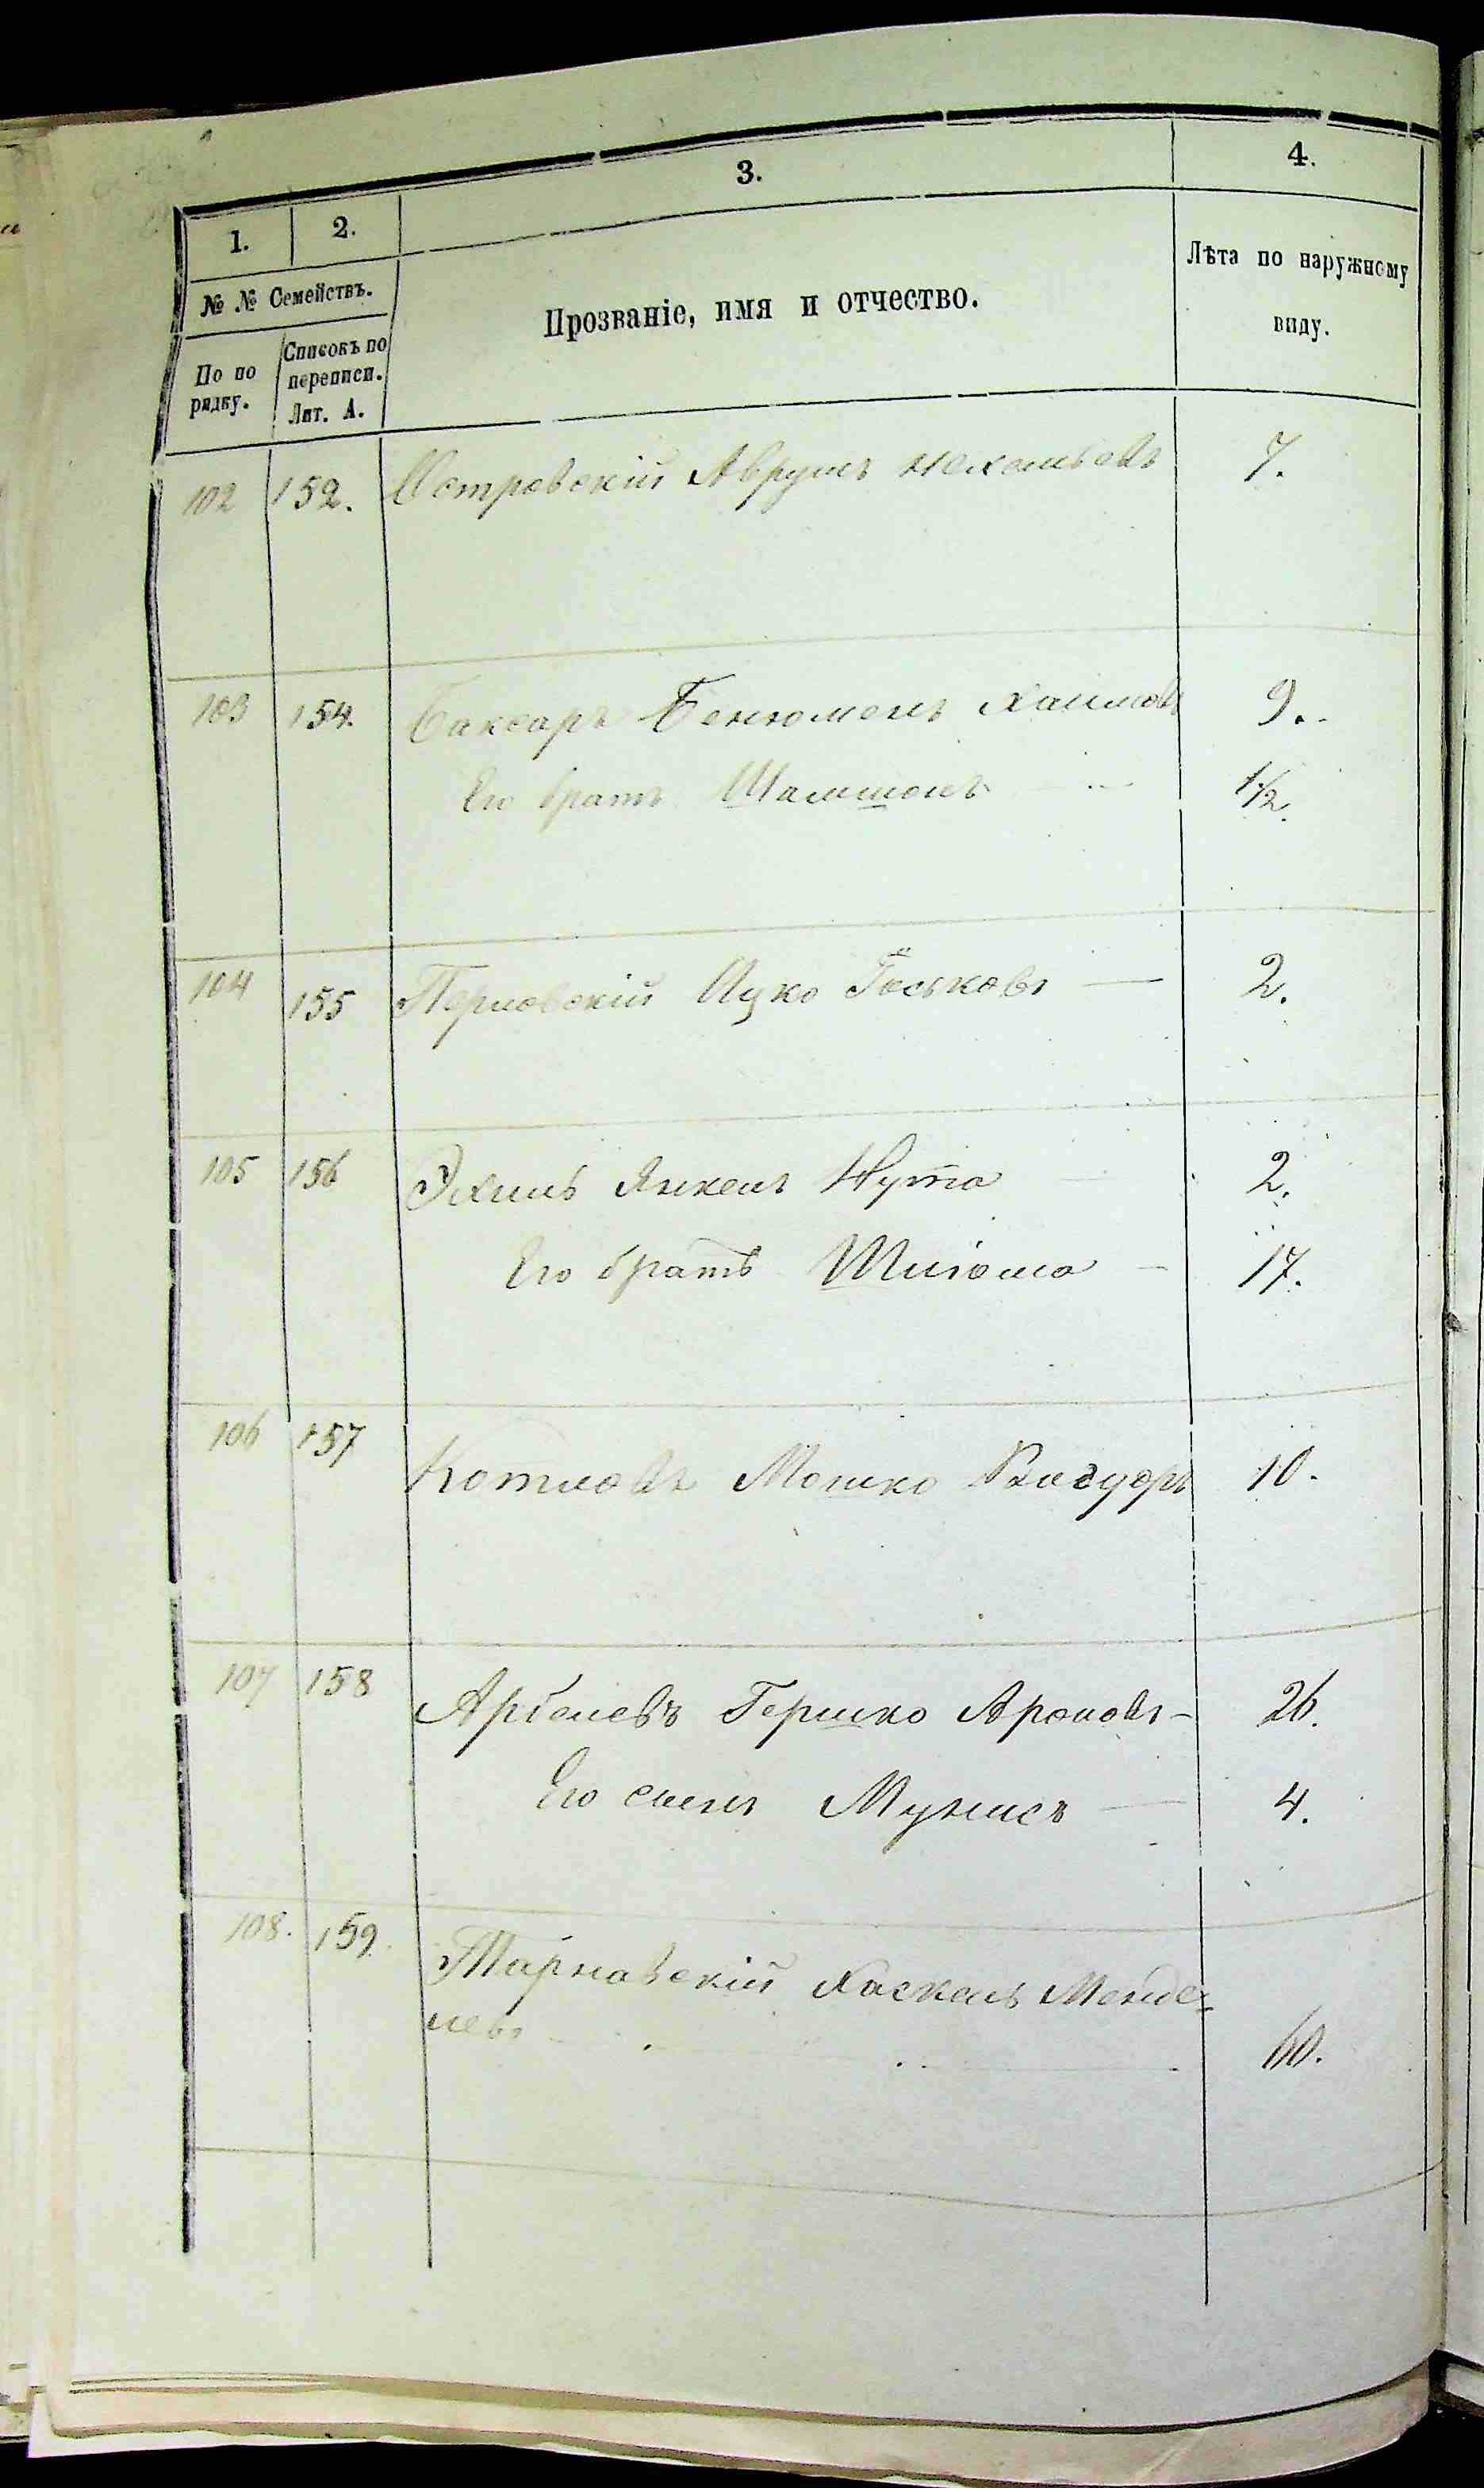 1. 2. 3. 4.
№ № Семействъ.
По по рядку.
Списокъ по переписи. Лит. А.
Прозваніе, имя и отчество.
Лѣта по наружному виду.
102 152. Островскій Аврумъ 7.
103 154. Баксаръ Бенюменъ Хаимовъ 9.
Его братъ Шамшонъ 1½.
104 155 Перловскій Ицко Іоськовъ — 2.
105 156 Эхиль Янкель Нута 2.
Его братъ Шліома — 17.
106 157 Котловъ Мошко 10.
107 158 Арбелевъ Гершко Ароновъ - 26.
Его сынъ Мунисъ — 4.
108. 159. Тарнавскій Хаскель Менде-
левъ 60.